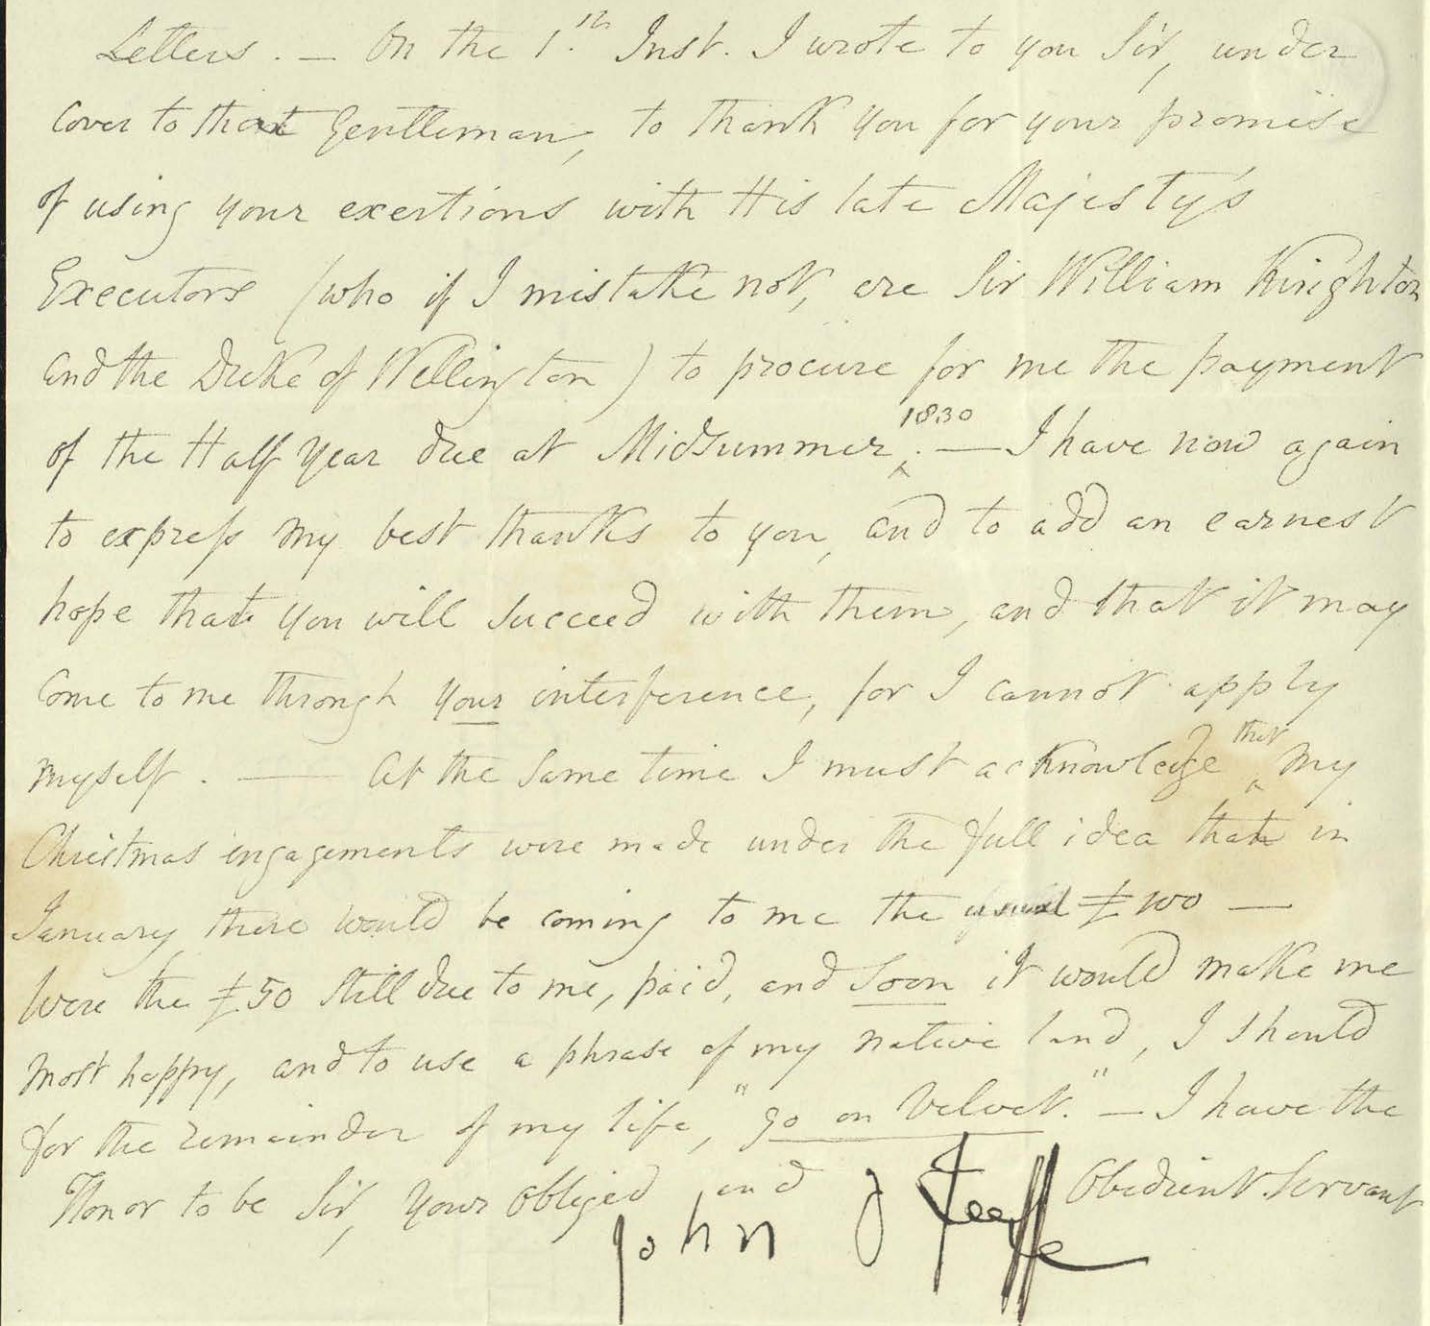 Letters. — On the 1.st Inst. I wrote to you Sir, under
Cover to that Gentleman, to thank you for your promise
of using your exertions with His late Majesty's
Executors (who if I mistake not, are Sir William Knighton
and the Duke of Wellington) to procure for me the payment
of the Half Year due at Midsummer 1830. — I have now again
to express my best thanks to you, and to add an earnest
hope that you will succeed with them, and that it may
Come to me through your interference, for I cannot apply
myself. — At the same time I must acknowledge that my
Christmas engagements were made under the full idea that in
January there would be coming to me the usual £100 —
Were the £50 still due to me, paid, and soon it would make me
most happy, and to use a phrase of my native land, I should
for the remainder of my life, "go on Velvet." — I have the
Honor to be Sir, Your obliged and Obedient Servant
John O Keeffe